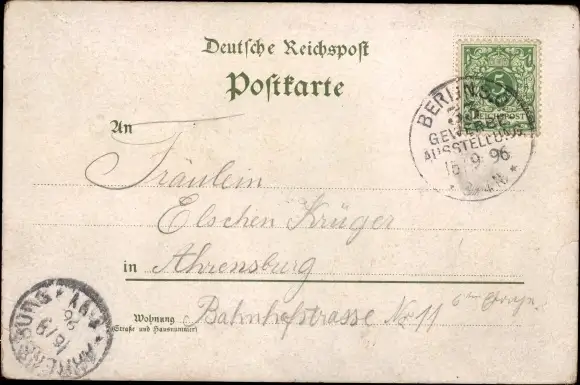 Deutsche Reichspost
Postkarte
5
REICHSPOST
BERLIN S.O
33
GEWERBE-
AUSSTELLUNG
15/9 96
An
Fräulein
Elschen Krüger
in Ahrensburg
Wohnung Bahnhofstrasse No 11
(Straße und Hausnummer)
AHRENSBURG
16/9
96